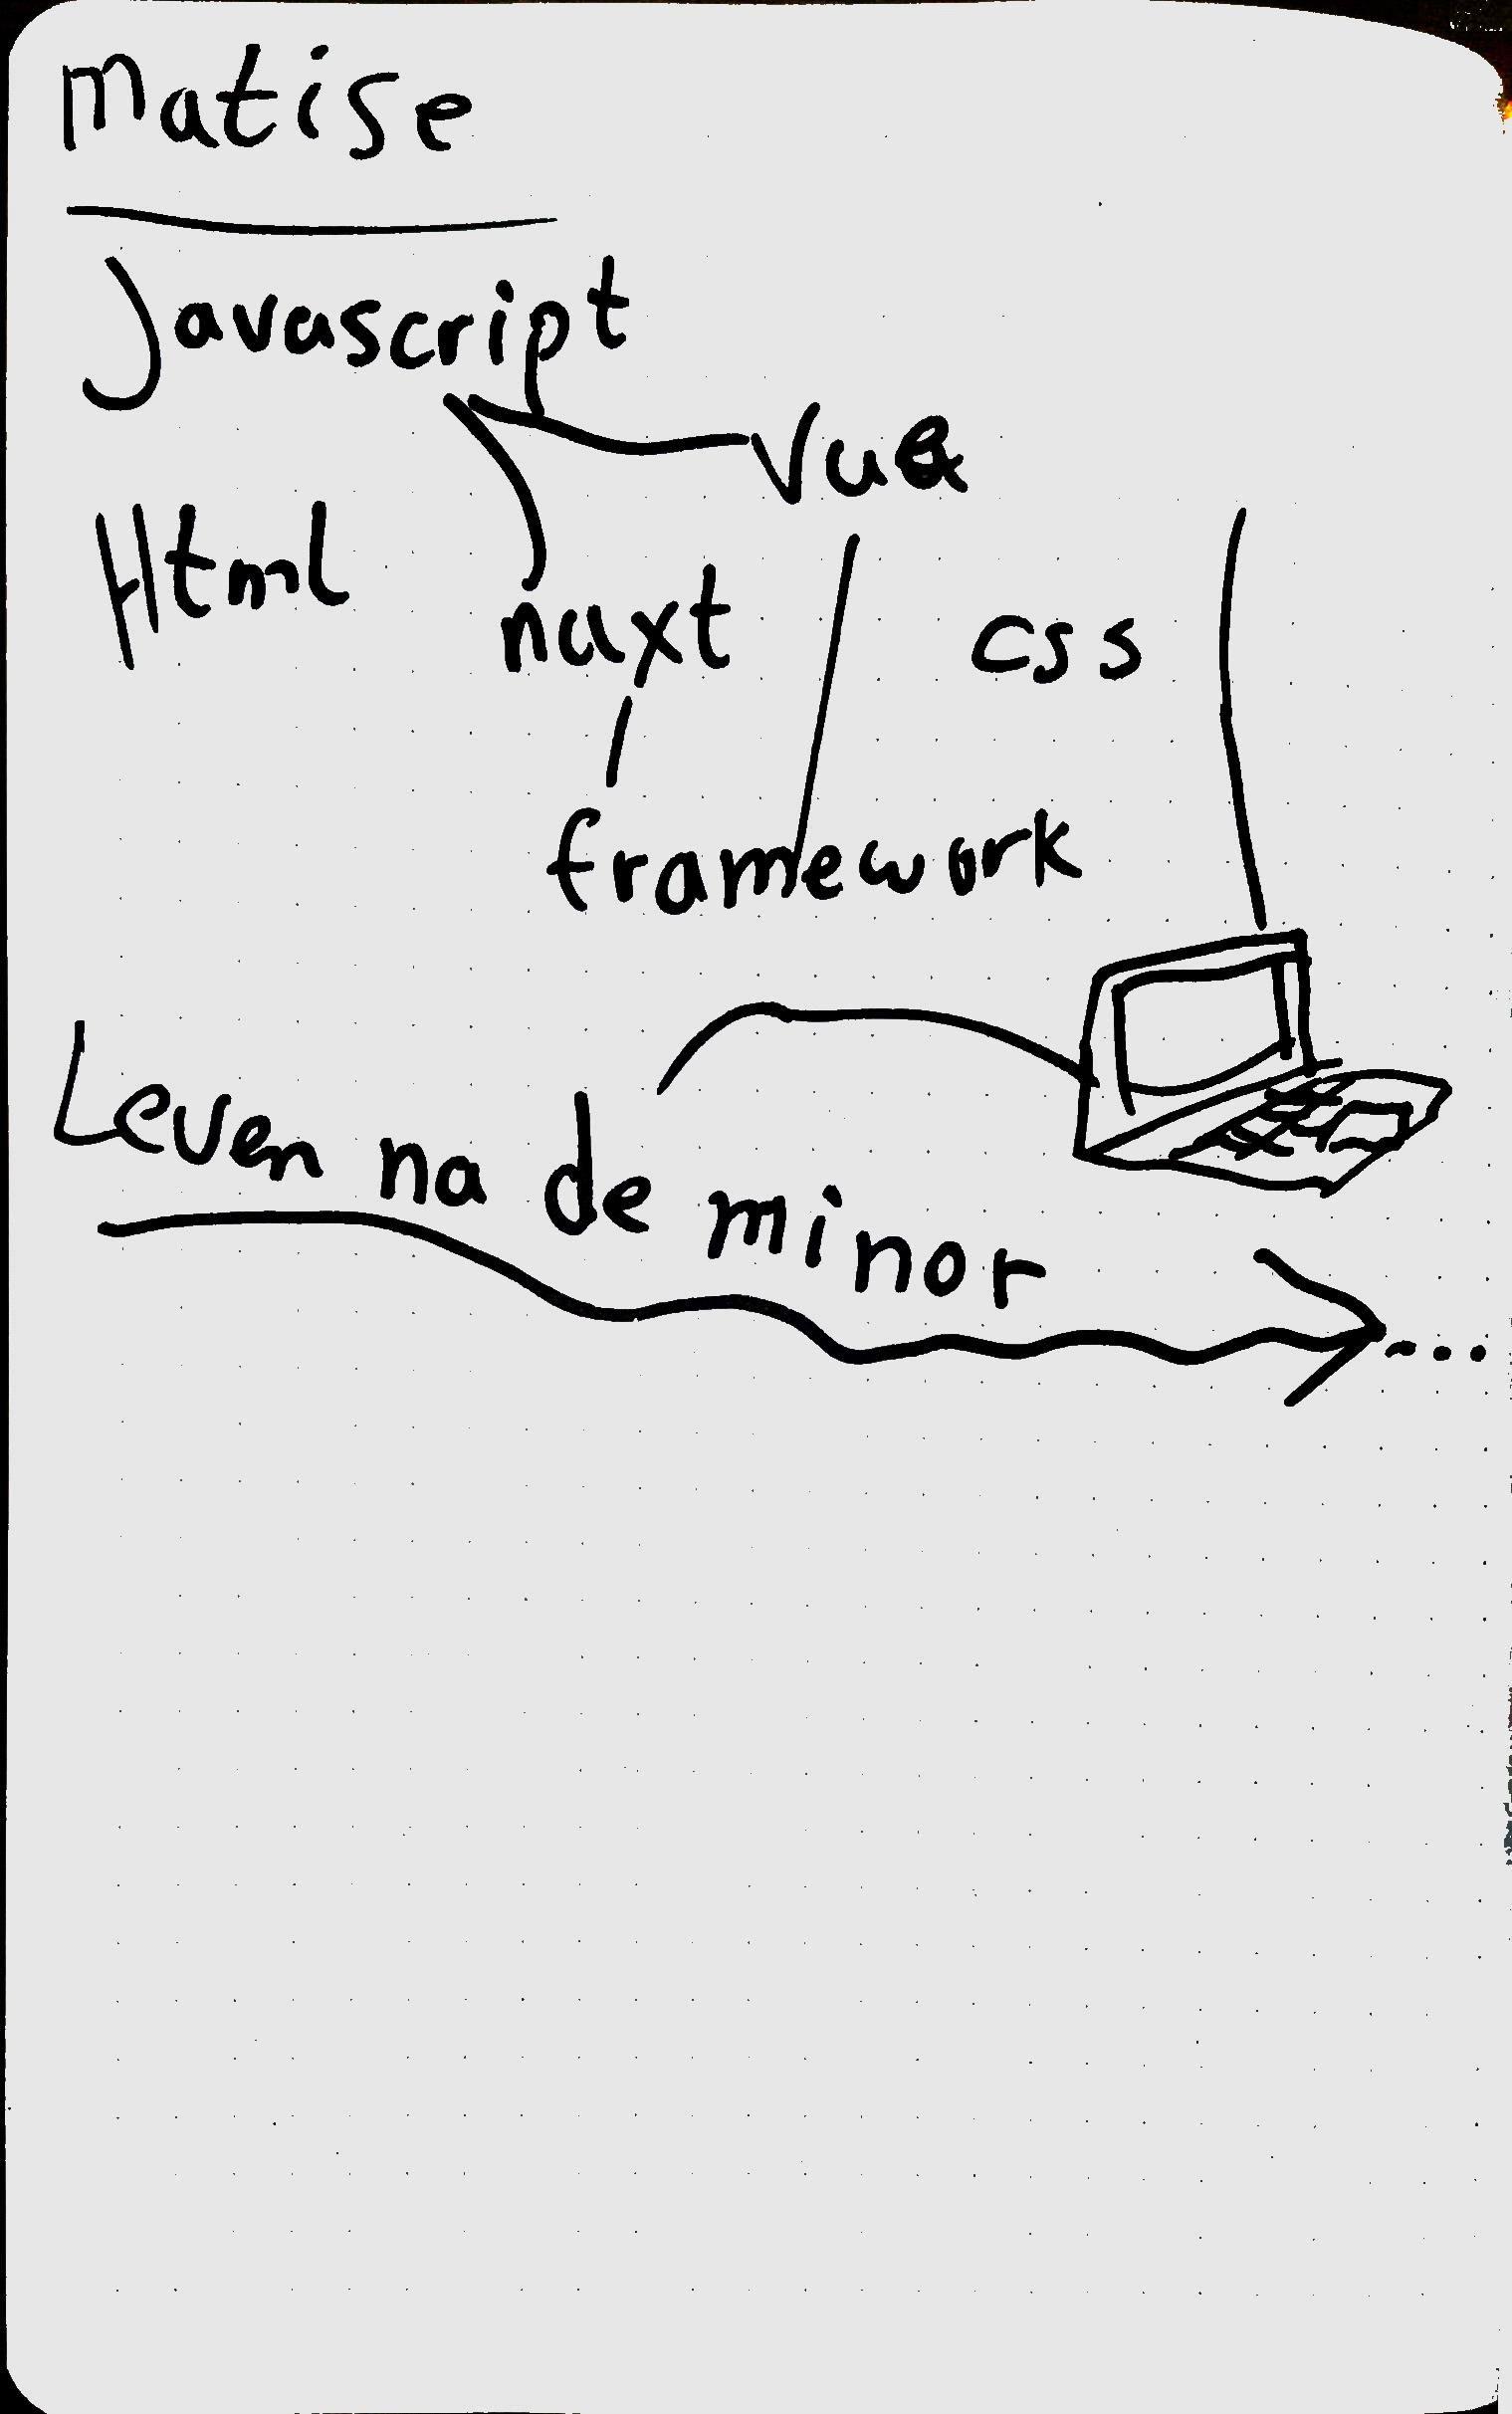 Matise
Javascript
Vue
Html
nuxt
css
framework
Leven na de minor
...